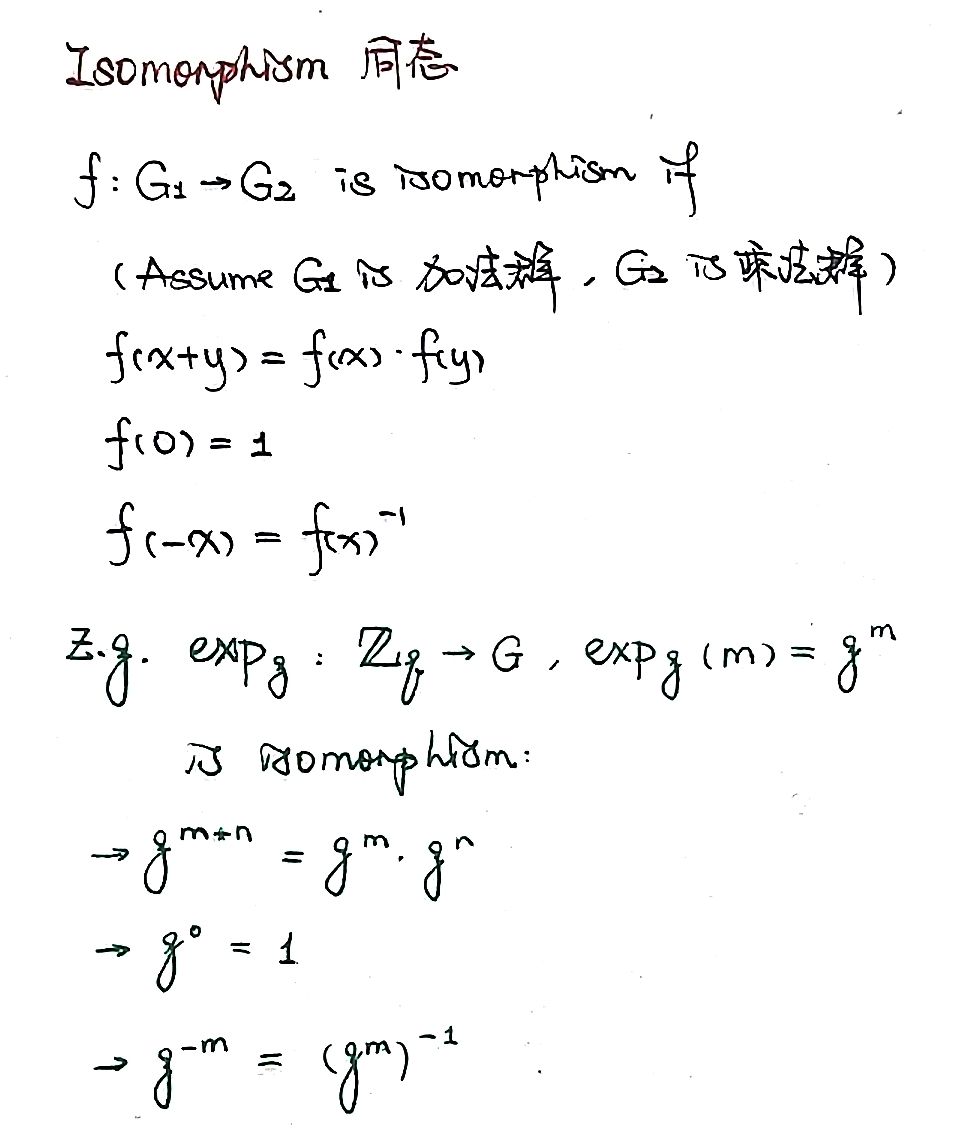 Isomorphism 同态
f: G₁ → G₂ is isomorphism if
(Assume G₁ is 加法群, G₂ is 乘法群)
f(x+y) = f(x)·f(y)
f(0) = 1
f(-x) = f(x)⁻¹
E.g. exp_g : ℤ_q → G, exp_g (m) = g^m
is isomorphism:
→ g^{m+n} = g^m · g^n
→ g⁰ = 1
→ g^{-m} = (g^m)^{-1}